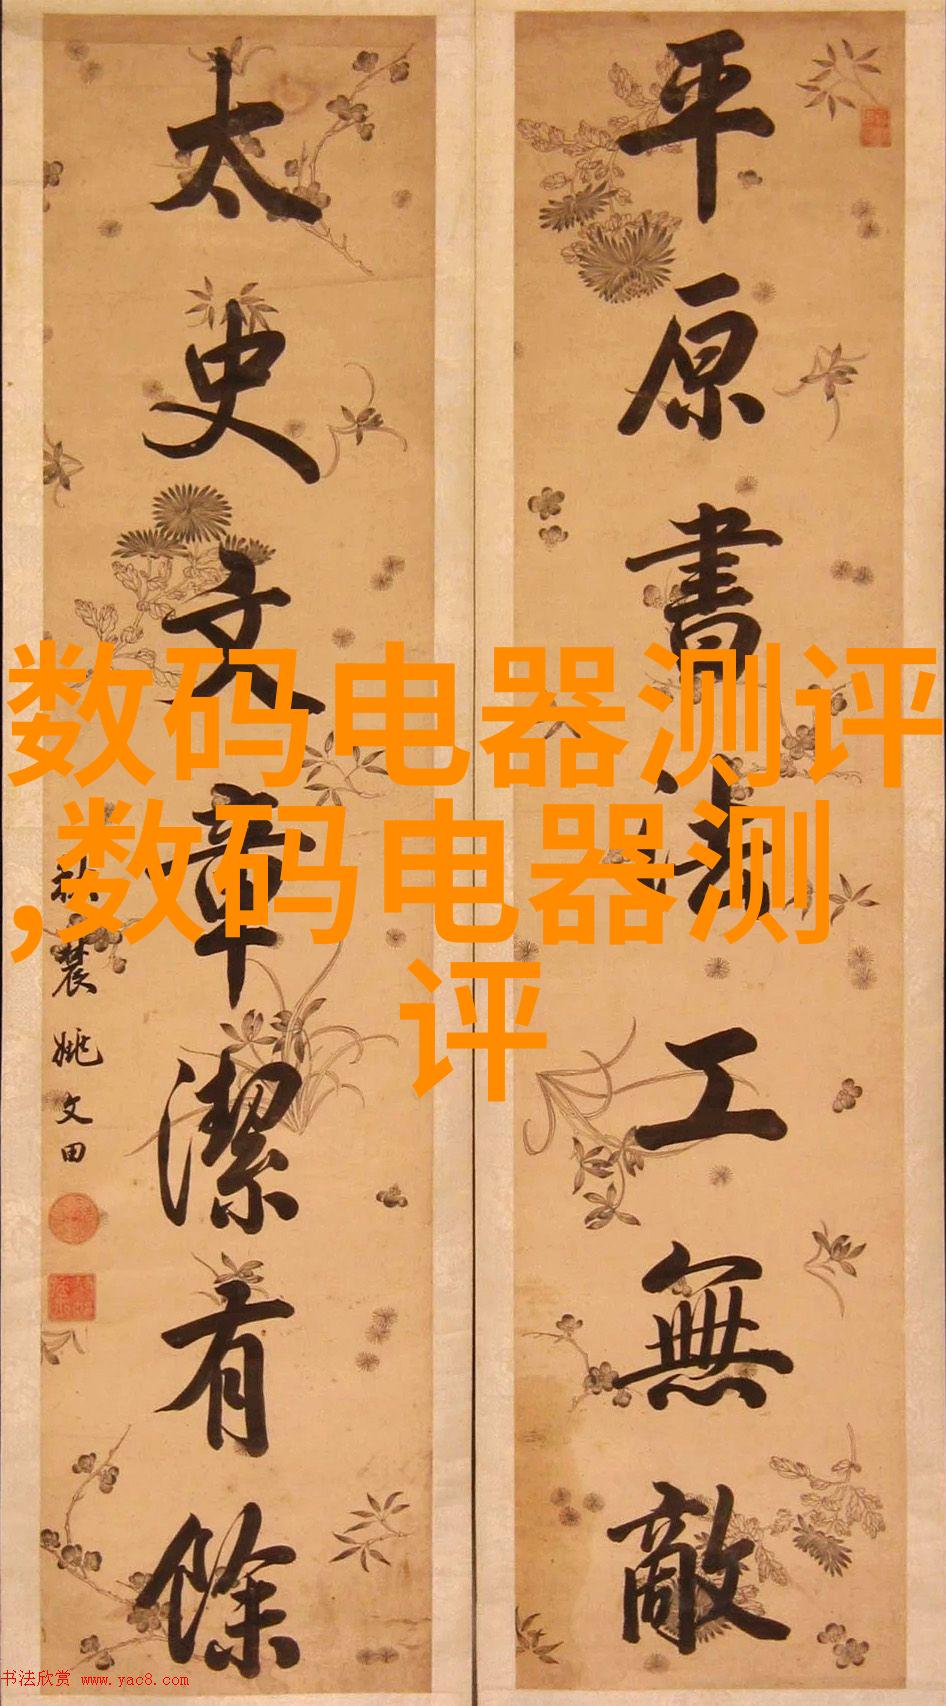 平原書法工無敵
太史文章潔有餘
秋農姚文田
数码电器测评
,数码电器测
评
书法欣赏 www.yac8.com